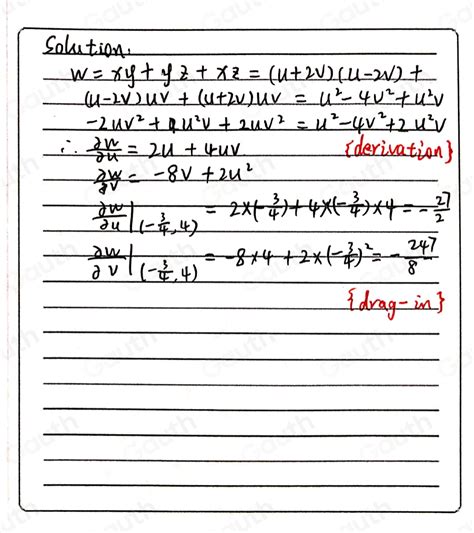 Solution:
w = xy + yz + xz = (u+2v)(u-2v) +
(u-2v)uv + (u+2v)uv = u² - 4v² + u²v
-2uv² + u²v + 2uv² = u² - 4v² + 2u²v
∴ ∂w/∂u = 2u + 4uv {derivation}
∂w/∂v = -8v + 2u²
∂w/∂u |(-3/4, 4) = 2×(-3/4) + 4×(-3/4)×4 = -27/2
∂w/∂v |(-3/4, 4) = -8×4 + 2×(-3/4)² = -247/8
{drag-in}
Gauth